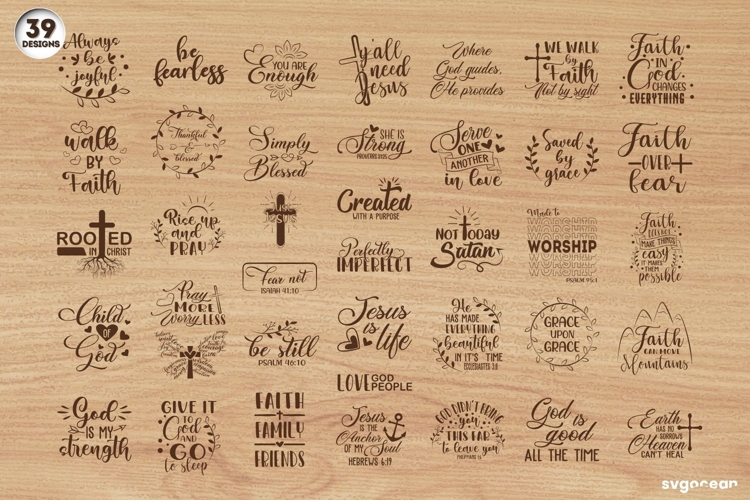 39
DESIGNS
Always
be
joyful
be
fearless
YOU ARE
Enough
y'all
need
Jesus
Where
God guides,
He provides
WE WALK
by
Faith
Not by sight
Faith
IN
God
CHANGES
EVERYTHING
walk
BY
Faith
Thankful
&
blessed
Simply
Blessed
SHE IS
Strong
PROVERBS 31:25
Serve
ONE
ANOTHER
in love
Saved
by
grace
Faith
OVER
fear
ROOTED
IN CHRIST
Rise up
and
PRAY
JESUS
Created
WITH A PURPOSE
Perfectly
IMPERFECT
NOT TODAY
Satan
Made to
WORSHIP
WORSHIP
WORSHIP
WORSHIP
WORSHIP
PSALM 95:1
Faith
DOES NOT
MAKE THINGS
easy
IT MAKES
THEM
possible
Fear not
ISAIAH 41:10
Child
of
God
Pray
MORE
Worry LESS
be still
PSALM 46:10
Jesus
is
life
He
HAS MADE
EVERYTHING
beautiful
IN IT'S TIME
ECCLESIASTES 3:11
GRACE
UPON
GRACE
Faith
CAN MOVE
Mountains
LOVE GOD
PEOPLE
God
IS MY
strength
GIVE IT
TO
God
AND
GO
to sleep
FAITH
FAMILY
FRIENDS
Jesus
IS THE
Anchor
OF MY Soul
HEBREWS 6:19
GOD DIDN'T BRING
you
THIS FAR
to leave you
God is
good
ALL THE TIME
Earth
HAS NO
SORROW
Heaven
CAN'T HEAL
svgocean